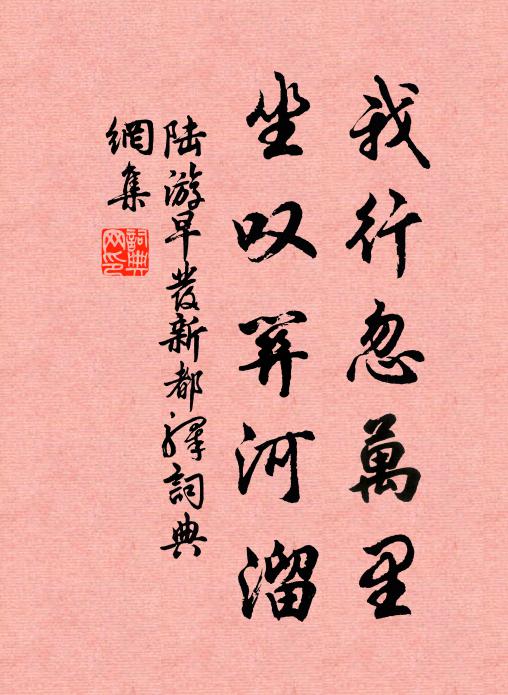 我行忽萬里
坐叹笄河溜
陆游早發新都驛詞典
網集
詞典
网印